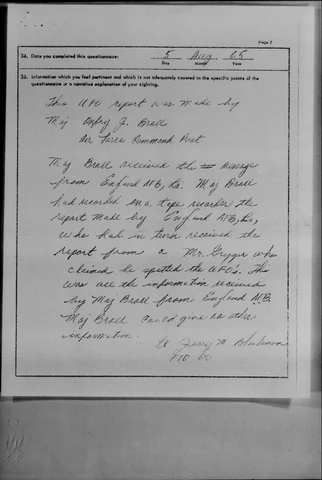 Page 7
34. Date you completed this questionnaire: 5 Aug 65
Day Month Year
35. Information which you feel pertinent and which is not adequately covered in the specific points of the
questionnaire or a narrative explanation of your sighting.
This UFO report was made by
Maj J. Brall
Air Force Command Post
Maj Brall received the message
from England AFB, La. Maj Brall
had recorded on a tape recorder the
report made by England AFB, La,
who had in turn received the
report from a Mr. Gregger who
claimed he spotted the UFO's. This
was all the information received
by Maj Brall from England AFB.
Maj Brall could give no other
information.
Lt Jerry M